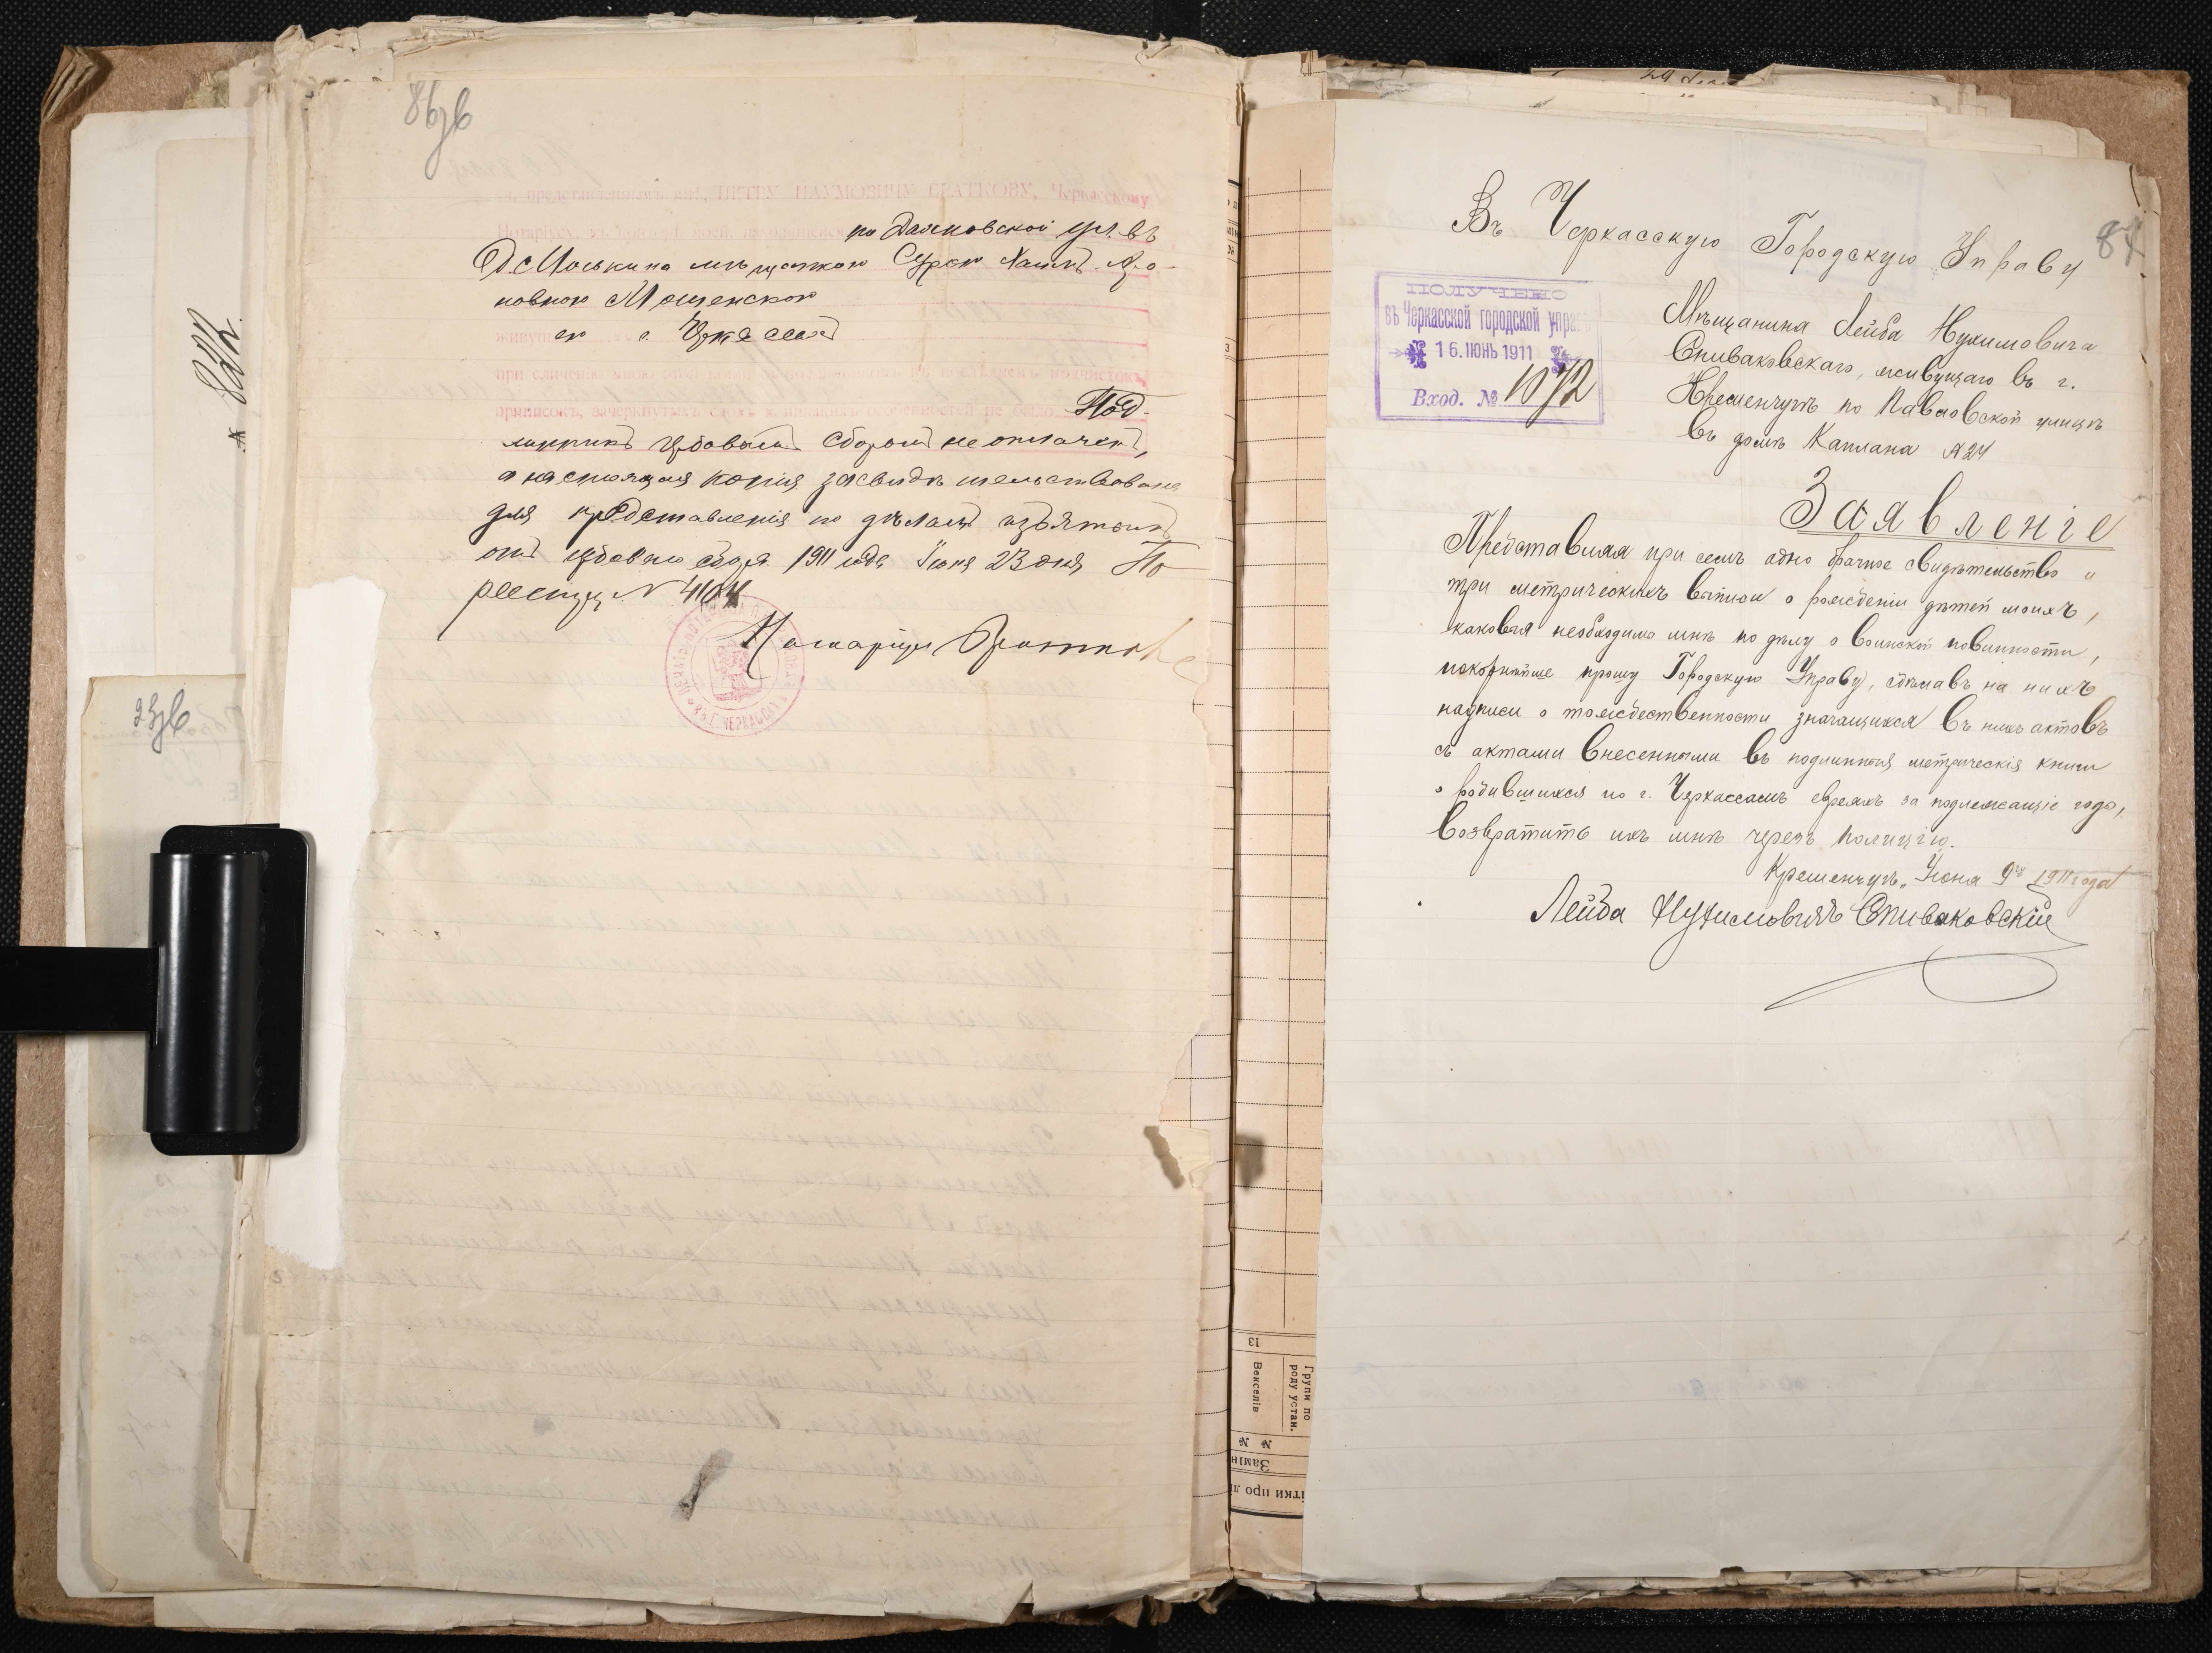 86зв
представленнымъ мнѣ, ПЕТРУ НАУМОВИЧУ БРАТКОВУ, Черкасскому
Нотаріусу, въ конторѣ моей, находящейся по Дахновской ул. въ
д. Иоськина мѣщанкою Сурою Хаимъ-Аро-
новною Мошенскою
живущ ею г. Черкассахъ
при сличеніи мною этой копіи съ подлинникомъ въ послѣднемъ подчистокъ,
приписокъ, зачеркнутыхъ словъ и никакихъ особенностей не было. Под-
линникъ гербовымъ сборомъ не оплаченъ,
а настоящая копія засвидѣтельствована
для представленія по дѣламъ изъятымъ
отъ гербоваго сбора. 1911 года Іюня 23 дня По
реестру № 4104
Нотаріусъ Братковъ
23зв
87
Въ Черкасскую Городскую Управу
ПОЛУЧЕНО
въ Черкасской городской управѣ
16. ІЮНЬ 1911
Вход. № 1072
Мѣщанина Лейба Нухимовича
Спиваковскаго, живущаго въ г.
Кременчугѣ по Павловской улицѣ
въ домѣ Каплана № 24
Заявленіе
Представляя при семъ одно брачное свидѣтельство и
три метрическихъ выписи о рожденіи дѣтей моихъ,
каковыя необходимо мнѣ по дѣлу о воинской повинности,
покорнѣйше прошу Городскую Управу, сдѣлавъ на нихъ
надписи о тождественности значащихся въ нихъ актовъ
съ актами внесенными въ подлинныя метрическія книги
о родившихся по г. Черкассамъ евреяхъ за подлежащіе года,
возвратить ихъ мнѣ черезъ полицію.
Кременчугъ, Іюня 9го 1911 года
Лейба Нухимовичъ Спиваковскій
13
Векселів
Групи по
роду устан.
№ №
Замін
ітки про